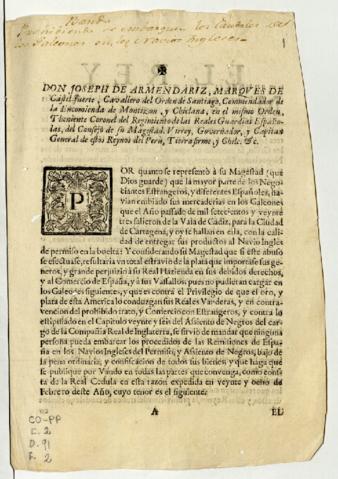 Bando
Prohibiendo se embarquen los caudales de
los Galeones en los Navios Ingleses
1
DON JOSEPH DE ARMENDARIZ, MARQVES DE
Castel-fuerte, Cavallero del Orden de Santiago, Commendador de
la Encomienda de Montizon, y Chiclana, en el mismo Orden,
Theniente Coronel del Regimiento de las Reales Guardias Españo-
las, del Consejo de su Magestad, Virrey, Governador, y Capitan
General de estos Reynos del Perù, Tierra firme, y Chile. &c.
POR quanto se representò à su Magestad (que
Dios guarde) que la mayor parte de los Nego-
ciantes Estrangeros, y diferentes Españoles, ha-
vian embiado sus mercaderias en los Galeones
que el Año passado de mil setecientos y veynte
tres salieron de la Vaìa de Cádiz, para la Ciudad
de Cartagena, y oy se hallan en ella, con la cali-
dad de entregar sus productos al Navio Inglès
de permiso en la buelta: Y considerando su Magestad que si este abuso
se efectuase, resultaria un total estravio de la plata que importase sus ge-
neros, y grande perjuizio à su Real Hazienda en sus debidos derechos,
y al Comercio de España, y à sus Vassallos, pues no pudieran cargar en
los Galeones siguientes, y que es contra el Privilegio de que el oro, y
plata de esta America lo conduzgan sus Reales Vanderas, y en contra-
vencion del prohibido trato, y Comercio con Estrangeros, y contra lo
estipulado en el Capitulo veynte y seis del Asiento de Negros del car-
go de la Compañia Real de Inglaterra, se sirviò de mandar que ninguna
persona pueda embarcar los procedidos de las Remisiones de Espa-
ña en los Navios Ingleses del Permiso, y Asiento de Negros, bajo de
la pena ordinaria, y confiscacion de todos sus bienes y que haga que
se publique por Vando en todas las partes que convenga, como cons-
ta de la Real Cedula en esta razon expedida en veynte y ocho de
Febrero deste Año, cuyo tenor es el siguiente.
A
EL
CO-PP
C. 2
D. 91
F. 2